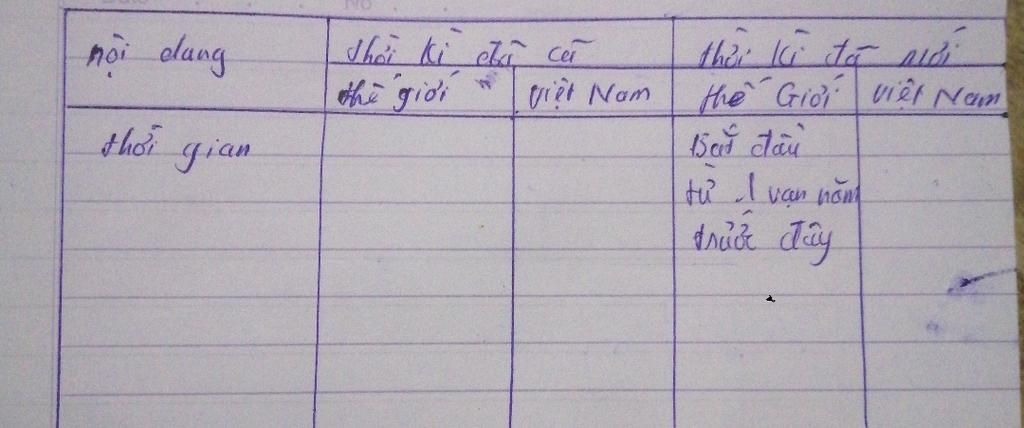 nội dung thời kì đá cũ thời kì đá mới
thế giới việt Nam thế Giới việt Nam
thời gian Bắt đầu
từ 1 vạn năm
trước đây